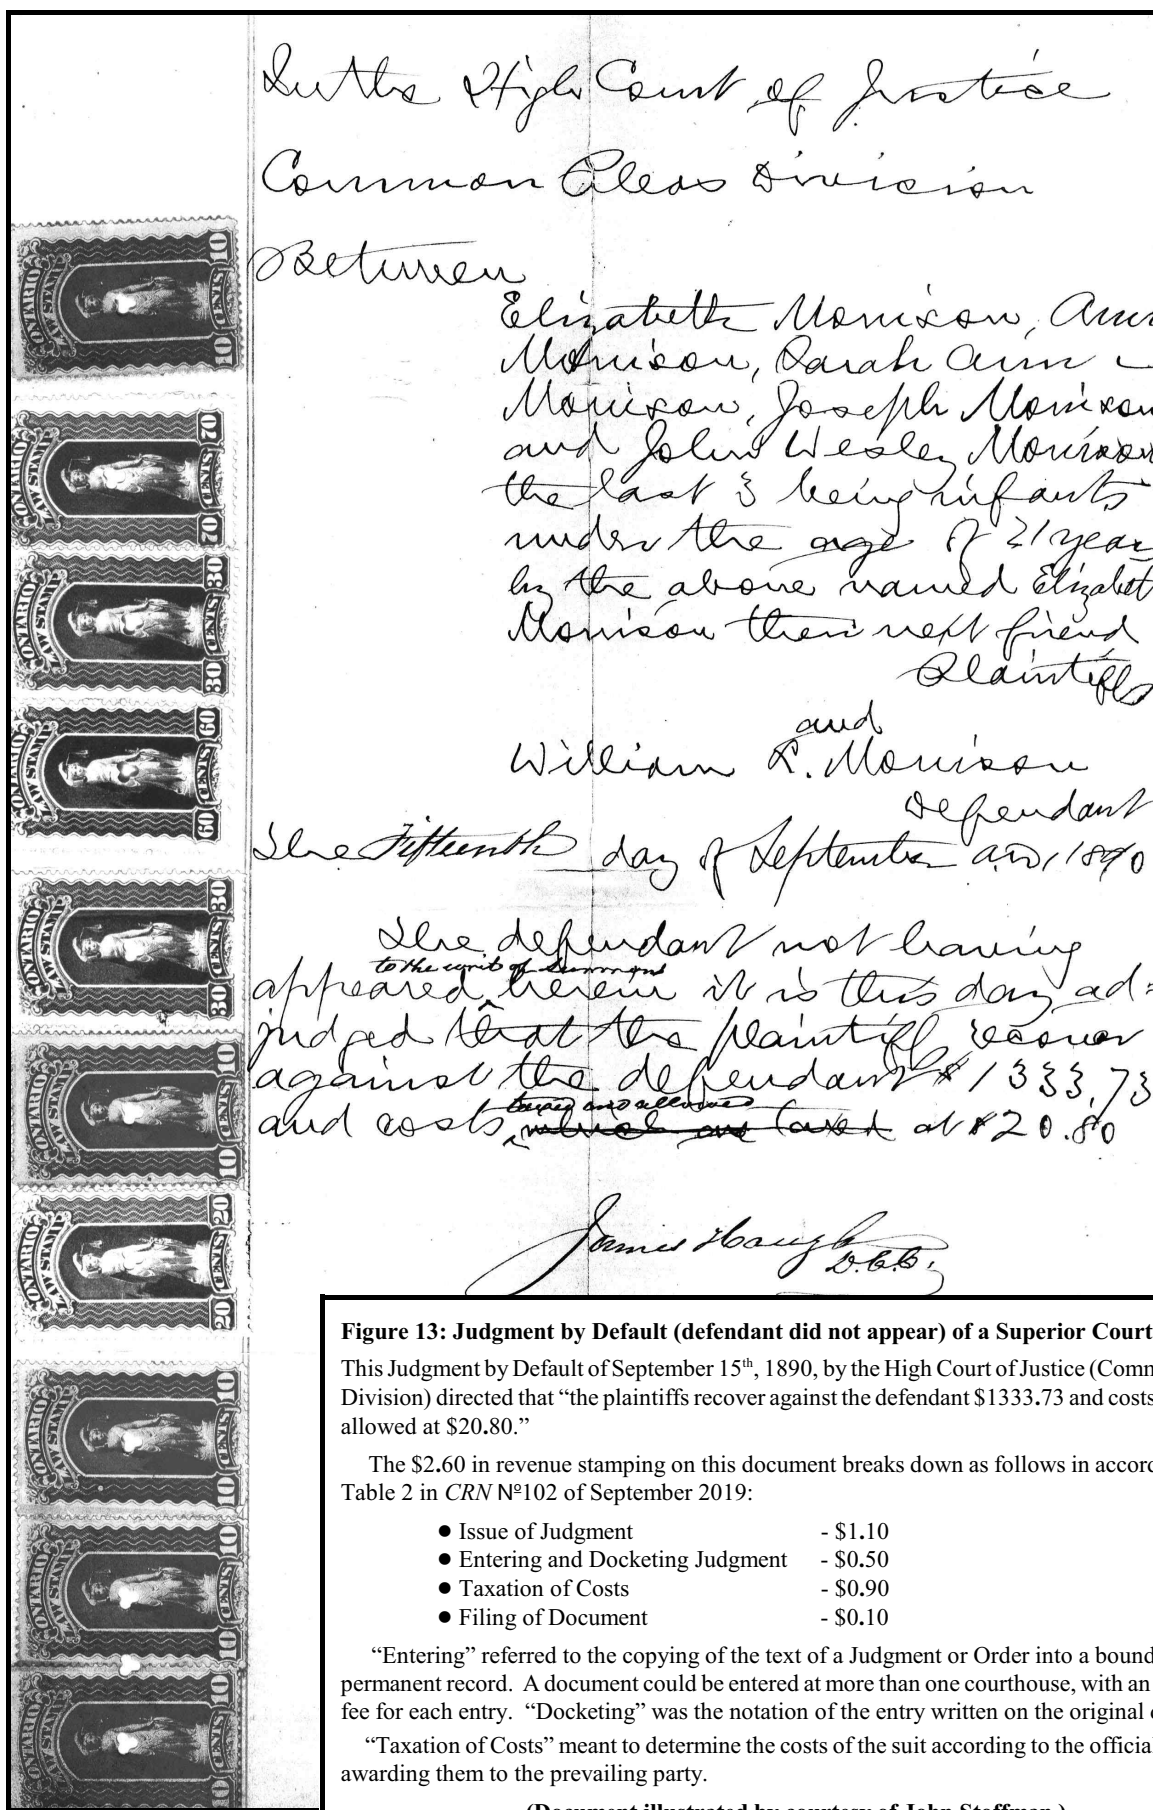 In the High Court of Justice
Common Pleas Division
Between
Elizabeth Morrison,
Morrison, Sarah Ann
Morrison, Joseph Morrison
and John Wesley Morrison
the last 3 being infants
under the age of 21 year
by the above named Elizabet
Morrison their next friend
Plaintiffs
and
William R. Morrison
Defendant
The Fifteenth day of September A.D. 1890
The defendant not having
to the writ of summons
appeared herein it is this day ad=
judged that the plaintiffs recover
against the defendant $1333.73
taxed and allowed
and costs which are taxed at $20.80
James Haugh
ONTARIO LAW STAMP 10 CENTS 10
ONTARIO LAW STAMP 70 CENTS 70
ONTARIO LAW STAMP 30 CENTS 30
ONTARIO LAW STAMP 60 CENTS 60
ONTARIO LAW STAMP 30 CENTS 30
ONTARIO LAW STAMP 10 CENTS 10
ONTARIO LAW STAMP 20 CENTS 20
ONTARIO LAW STAMP 10 CENTS 10
ONTARIO LAW STAMP 10 CENTS 10
ONTARIO LAW STAMP 10 CENTS 10
Figure 13: Judgment by Default (defendant did not appear) of a Superior Court
This Judgment by Default of September 15th, 1890, by the High Court of Justice (Comm
Division) directed that “the plaintiffs recover against the defendant $1333.73 and costs
allowed at $20.80.”
The $2.60 in revenue stamping on this document breaks down as follows in accord
Table 2 in CRN Nº102 of September 2019:
● Issue of Judgment - $1.10
● Entering and Docketing Judgment - $0.50
● Taxation of Costs - $0.90
● Filing of Document - $0.10
“Entering” referred to the copying of the text of a Judgment or Order into a bound
permanent record. A document could be entered at more than one courthouse, with an
fee for each entry. “Docketing” was the notation of the entry written on the original
“Taxation of Costs” meant to determine the costs of the suit according to the official
awarding them to the prevailing party.
(Document illustrated by courtesy of John Steffman.)